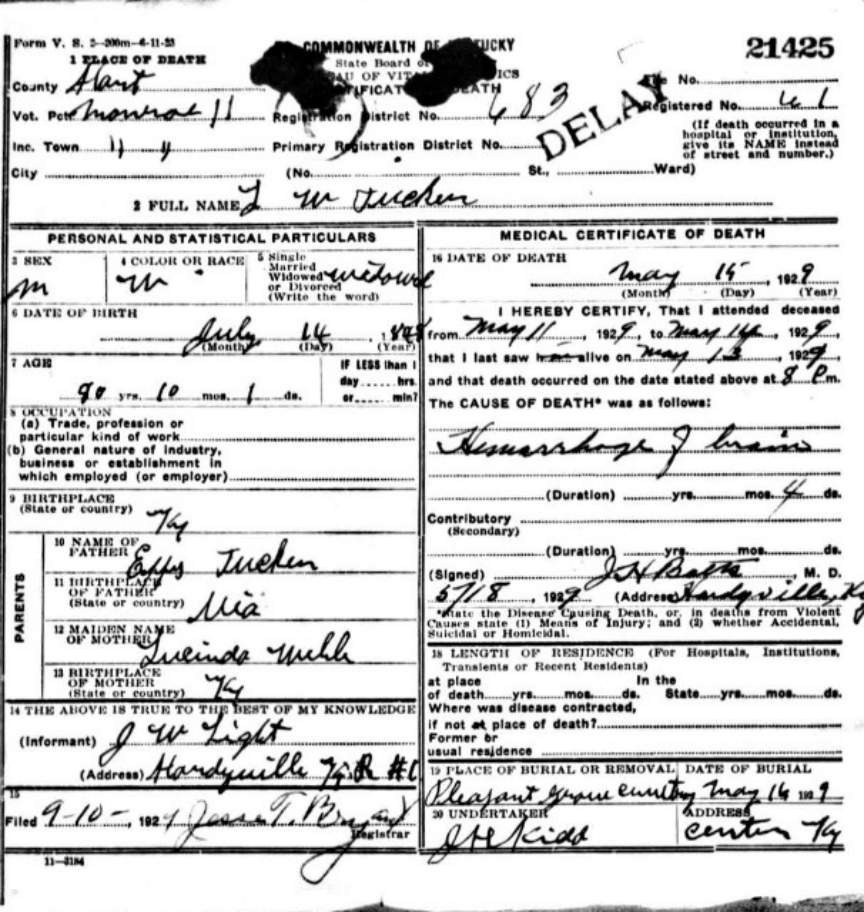 Form V. S. 2-200m-6-11-23
1 PLACE OF DEATH
County Hart
Vot. Pct Monroe 11
Inc. Town 11 4
City
COMMONWEALTH OF KENTUCKY
State Board of
CERTIFICATE OF DEATH
Registration District No. 683
Primary Registration District No.
(No. St., Ward)
DELAY
21425
File No.
Registered No. 61
(If death occurred in a
hospital or institution,
give its NAME instead
of street and number.)
2 FULL NAME L W Tucker
PERSONAL AND STATISTICAL PARTICULARS
3 SEX
M
4 COLOR OR RACE
W
5 Single
Married
Widowed
or Divorced
(Write the word)
widowed
6 DATE OF BIRTH
July 14, 1
(Month) (Day) (Year)
7 AGE
90 yrs. 10 mos. 1 ds.
IF LESS than 1
day hrs.
or min?
8 OCCUPATION
(a) Trade, profession or
particular kind of work
(b) General nature of industry,
business or establishment in
which employed (or employer)
9 BIRTHPLACE
(State or country)
Ky
PARENTS
10 NAME OF
FATHER
Tucker
11 BIRTHPLACE
OF FATHER
(State or country)
12 MAIDEN NAME
OF MOTHER
Lucinda
13 BIRTHPLACE
OF MOTHER
(State or country)
Ky
14 THE ABOVE IS TRUE TO THE BEST OF MY KNOWLEDGE
(Informant) J W Light
(Address) Hardyville Ky R #1
15
Filed 9-10-, 1929 Jesse T. Bryant
Registrar
11-3184
MEDICAL CERTIFICATE OF DEATH
16 DATE OF DEATH
May 15, 1929
(Month) (Day) (Year)
I HEREBY CERTIFY, That I attended deceased
from May 11, 1929, to May 14, 1929,
that I last saw h alive on May 13, 1929
and that death occurred on the date stated above at 8 P m.
The CAUSE OF DEATH* was as follows:
Hemorrhage of brain
(Duration) yrs. mos. 4 ds.
Contributory
(Secondary)
(Duration) yrs. mos. ds.
(Signed) J H , M. D.
5/18, 1929 (Address) Hardyville, Ky
*State the Disease Causing Death, or, in deaths from Violent
Causes state (1) Means of Injury; and (2) whether Accidental,
Suicidal or Homicidal.
18 LENGTH OF RESIDENCE (For Hospitals, Institutions,
Transients or Recent Residents)
at place In the
of death yrs. mos. ds. State yrs. mos. ds.
Where was disease contracted,
if not at place of death?
Former or
usual residence
19 PLACE OF BURIAL OR REMOVAL DATE OF BURIAL
Pleasant Grove May 16 1929
20 UNDERTAKER ADDRESS
Kidd Center Ky